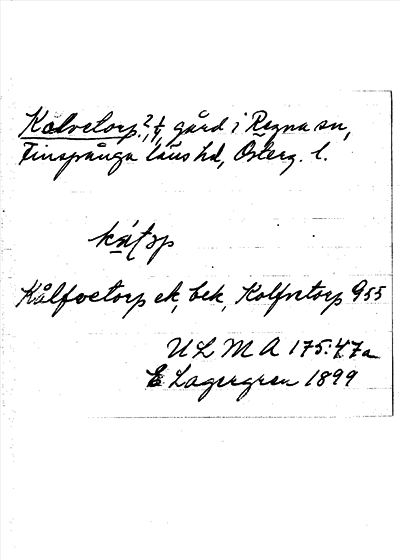 Kalvetorp, 2/4, gård i Regna sn,
Finspånga läns hd, Österg. l.
kátɔp
Kålfvetorp ek, bek, Kolfvetorp G55
ULMA 175:47a
E Lagergren 1899